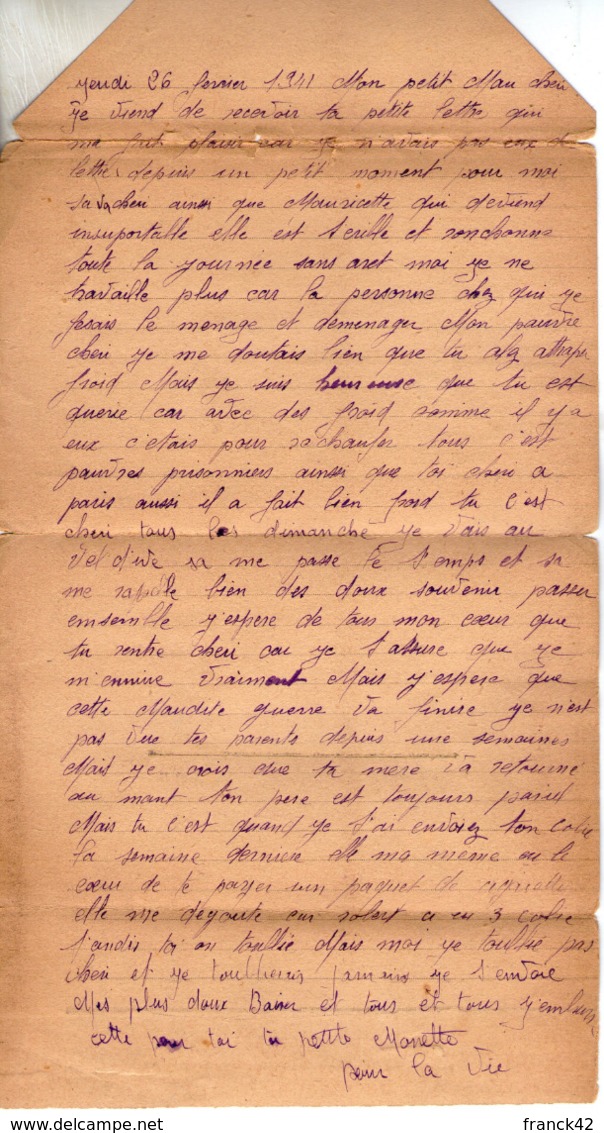 yeudi 26 fevrier 1941 Mon petit Mau cheri
ye viend de recevoir ta petite lettre qui
ma fait plaisir car ye n'avais pas eux de
lettre depuis un petit moment pour moi
sava cheri ainsi que Mauricette qui deviend
insuportable elle est terible et ronchonne
toute la yournée sans aret moi ye ne
travaille plus car la personne chez qui ye
fesais le menage et demenager Mon pauvre
cheri ye me doutais bien que tu alez attraper
froid Mais ye suis heureuse que tu est
querie car avec des froid comme il y a
eux c'etais pour rechaufer tous c'est
pauvres prisonniers ainsi que toi cheri a
paris aussi il a fait bien froid tu c'est
cheri tous les dimanche ye vais au
Vel d'ive sa me passe le temps et sa
me rapele bien des doux souvenir passer
ensemble y'espere de tous mon cœur que
tu rentre cheri car ye t'assure que ye
m'ennuie vraiment Mais y'espere que
cette Maudite guerre va finire ye n'est
pas vue tes parents depuis une semaines
Mais ye crois que ta mere va retourné
au mant ton pere est toujours pareil
Mais tu c'est quand ye t'ai envoiez ton colis
la semaine derniere elle ma meme eu le
cœur de te payer un paquet de cigarette
elle me degoute car robert a eu 3 colis
tandis toi on toublie Mais moi ye toublie pas
cheri et ye toublierais jamais ye t'envoie
Mes plus doux Baiser et tous et tous y'embrasse
cette pour toi ta petite Monette
pour la vie
franck42